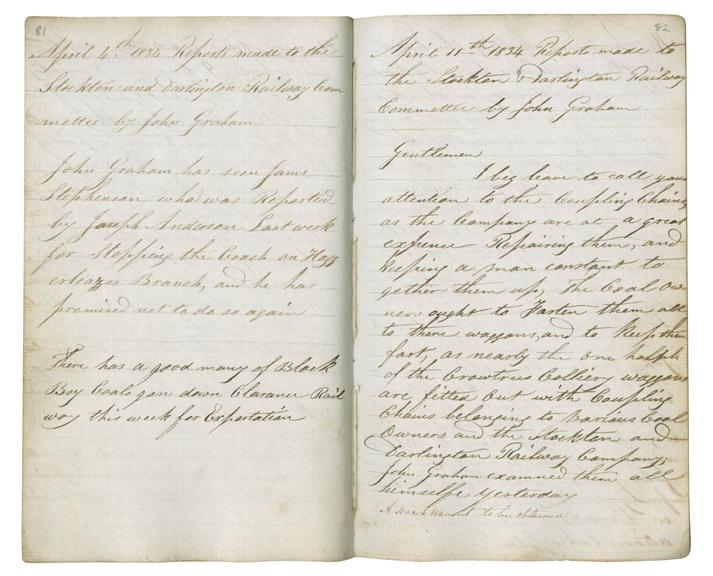 81
April 4th 1834 Reports made to the
Stockton and Darlington Railway Com
mettee by John Graham
John Graham has seen Jams
Stephenson who was Reported
by Joseph Anderson Last week
for Stopping the Coach on Hagg
erleazes Branch, and he has
promised not to do so again
There has a good many of Black
Boy Coals gon down Clarance Rail
way this week for Exportation
82
April 11th 1834 Reports made to
the Stockton & Darlington Railway
Committee by John Graham
Gentlemen
I beg leave to call your
attention to the Coupling Chains
as the Company are at a great
expence Repairing them, and
keeping a man constant to
gether them up, the Coal Ow
ners ought to Fasten them all
to there waggons, and to keep them
fast, as nearly the one halph
of the Crowtrus Colliery waggons
are fitted Out with Coupling
Chains belonging to Various Coal
Owners and the Stockton and
Darlington Railway Company,
John Graham examned them all
himselfe yesterday
A search Warrant to be obtained